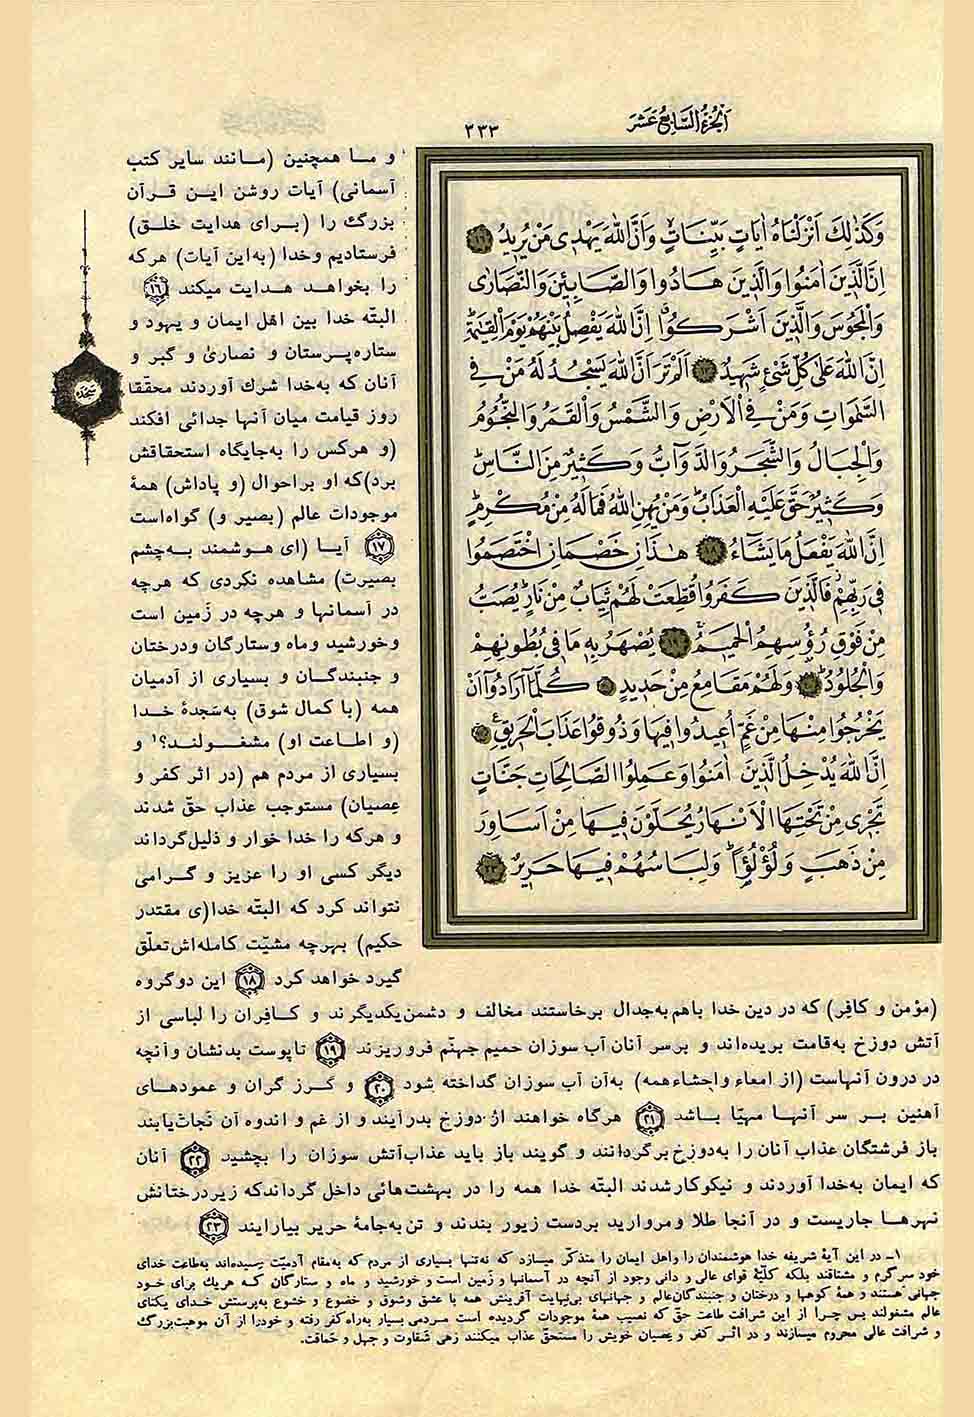 اَلْجُزْءُ السَّابِعُ عَشَرَ
۳۳۳
وَكَذٰلِكَ اَنْزَلْنَاهُ اٰيَاتٍ بَيِّنَاتٍ وَاَنَّ اللّٰهَ يَهْدِى مَنْ يُرِيدُ ۱۶
اِنَّ الَّذِينَ اٰمَنُوا وَالَّذِينَ هَادُوا وَالصَّابِئِينَ وَالنَّصَارٰى
وَالْمَجُوسَ وَالَّذِينَ اَشْرَكُوا اِنَّ اللّٰهَ يَفْصِلُ بَيْنَهُمْ يَوْمَ الْقِيٰمَةِ
اِنَّ اللّٰهَ عَلٰى كُلِّ شَىْءٍ شَهِيدٌ ۱۷ اَلَمْ تَرَ اَنَّ اللّٰهَ يَسْجُدُ لَهُ مَنْ فِى
السَّمٰوَاتِ وَمَنْ فِى الْاَرْضِ وَالشَّمْسُ وَالْقَمَرُ وَالنُّجُومُ
وَالْجِبَالُ وَالشَّجَرُ وَالدَّوَآبُّ وَكَثِيرٌ مِنَ النَّاسِ
وَكَثِيرٌ حَقَّ عَلَيْهِ الْعَذَابُ وَمَنْ يُهِنِ اللّٰهُ فَمَا لَهُ مِنْ مُكْرِمٍ
اِنَّ اللّٰهَ يَفْعَلُ مَا يَشَآءُ ۱۸ هٰذَانِ خَصْمَانِ اخْتَصَمُوا
فِى رَبِّهِمْ فَالَّذِينَ كَفَرُوا قُطِّعَتْ لَهُمْ ثِيَابٌ مِنْ نَارٍ يُصَبُّ
مِنْ فَوْقِ رُؤُسِهِمُ الْحَمِيمُ ۱۹ يُصْهَرُ بِهِ مَا فِى بُطُونِهِمْ
وَالْجُلُودُ ۲۰ وَلَهُمْ مَقَامِعُ مِنْ حَدِيدٍ ۲۱ كُلَّمَآ اَرَادُوآ اَنْ
يَخْرُجُوا مِنْهَا مِنْ غَمٍّ اُعِيدُوا فِيهَا وَذُوقُوا عَذَابَ الْحَرِيقِ ۲۲
اِنَّ اللّٰهَ يُدْخِلُ الَّذِينَ اٰمَنُوا وَعَمِلُوا الصَّالِحَاتِ جَنَّاتٍ
تَجْرِى مِنْ تَحْتِهَا الْاَنْهَارُ يُحَلَّوْنَ فِيهَا مِنْ اَسَاوِرَ
مِنْ ذَهَبٍ وَلُؤْلُؤًا وَلِبَاسُهُمْ فِيهَا حَرِيرٌ ۲۳
و ما همچنین (مانند سایر کتب
آسمانی) آیات روشن این قرآن
بزرگ را (برای هدایت خلق)
فرستادیم وخدا (به‌این آیات) هرکه
را بخواهد هدایت میکند ۱۶
البتّه خدا بین اهل ایمان و یهود و
ستاره‌پرستان و نصاریٰ و گبر و
آنان که به‌خدا شرك آوردند محقّقا
روز قیامت میان آنها جدائی افکند
(و هرکس را به‌جایگاه استحقاقش
برد)که او براحوال (و پاداش) همهٔ
موجودات عالم (بصیر و) گواه‌است
۱۷ آیا (ای هوشمند به‌چشم
بصیرت) مشاهده نکردی که هرچه
در آسمانها و هرچه در زَمین است
وخورشید وماه وستارگان ودرختان
و جنبندگان و بسیاری از آدمیان
همه (با کمال شوق) به‌سَجدهٔ خدا
(و اطاعت او) مشغولند؟۱ و
بسیاری از مردم هم (در اثر کفر و
عِصیان) مستوجب عذاب حقّ شدند
و هرکه را خدا خوار و ذلیل‌گرداند
دیگر کسی او را عزیز و گرامی
نتواند کرد که البتّه خدا(ی مقتدر
حکیم) بهرچه مشیّت کامله‌اش‌تعلّق
گیرد خواهد کرد ۱۸ این دوگروه
(مؤمن و کافِر) که در دین خدا باهم به‌جدال برخاستند مخالف و دشمن‌یکدیگرند و کافِران را لباسی از
آتش دوزخ به‌قامت بریده‌اند و برسر آنان آب سوزان حمیم جهنّم فروریزند ۱۹ تاپوست بدنشان وآنچه
در درون آنهاست (از امعاء واحشاءهمه) به‌آن آب سوزان گداخته شود ۲۰ و گرز گران و عمودهای
آهنین بر سر آنها مهیّا باشد ۲۱ هرگاه خواهند از دوزخ بدرآیند و از غم و اندوه آن نَجات‌یابند
باز فرشتگان عذاب آنان را به‌دوزخ برگردانند و گویند باز باید عذاب‌آتش سوزان را بچشید ۲۲ آنان
که ایمان به‌خدا آوردند و نیکوکارشدند البتّه خدا همه را در بهشت‌هائی داخل گرداندکه زیردرختانش
نهرها جاریست و در آنجا طلا ومروارید بردست زیور بندند و تن به‌جامهٔ حریر بیارایند ۲۳
۱ـ در این آیهٔ شریفه خدا هوشمندان را واهل ایمان را متذکّر میسازد که نه‌تنها بسیاری از مردم که به‌مقام آدمیّت رسیده‌اند به‌طاعت خدای
خود سرگرم و مشتاقند بلکه کلّیّهٔ قوای عالی و دانی وجود از آنچه در آسمانها و زَمین است و خورشید و ماه و ستارگان که هریك برای خود
جهانی هستند و همهٔ کوهها و درختان و جنبندگان‌عالم و جهانهای بی‌نهایت آفرینش همه با عشق وشوق و خضوع و خشوع به‌پرستش خدای یکتای
عالم مشغولند پس چرا از این شرافت طاعت حقّ که نصیب همهٔ موجودات گردیده است مردمی بسیار به‌راه‌کفر رفته و خودرا از آن موهبت‌بزرگ
و شرافت عالی محروم میسازند و در اثر کفر و عِصیان خویش را مستحقّ عذاب میکنند زهی شَقاوت و جهل و حَماقت.
سجده